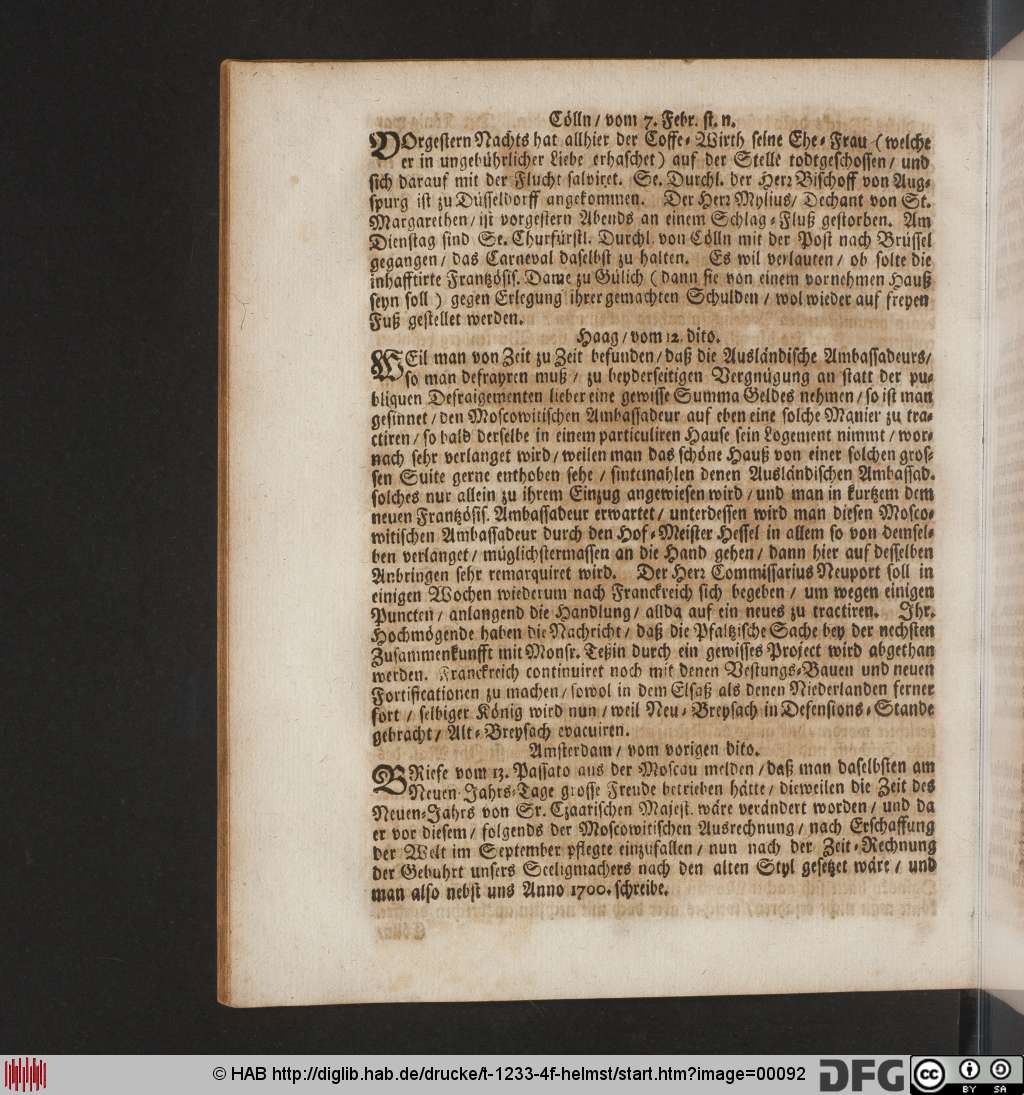 Cölln / vom 7. Febr. st. n.
VOrgestern Nachts hat allhier der Coffe-Wirth seine Ehe-Frau (welche
er in ungebührlicher Liebe erhaschet) auf der Stelle todtgeschossen / und
sich darauf mit der Flucht salviret. Se. Durchl. der Herr Bischoff von Aug-
spurg ist zu Düsseldorff angekommen. Der Herr Mylius / Dechant von St.
Margarethen / ist vorgestern Abends an einem Schlag-Fluß gestorben. Am
Dienstag sind Se. Churfürstl. Durchl. von Cölln mit der Post nach Brüssel
gegangen / das Carneval daselbst zu halten. Es wil verlauten / ob solte die
inhafftirte Frantzösis. Dame zu Gülich (dann sie von einem vornehmen Hauß
seyn soll) gegen Erlegung ihrer gemachten Schulden / wol wieder auf freyen
Fuß gestellet werden.
Haag / vom 12. dito.
WEil man von Zeit zu Zeit befunden / daß die Ausländische Ambassadeurs /
so man defrayren muß / zu beyderseitigen Vergnügung an statt der pu-
bliquen Defraigementen lieber eine gewisse Summa Geldes nehmen / so ist man
gesinnet / den Moscowitischen Ambassadeur auf eben eine solche Manier zu tra-
ctiren / so bald derselbe in einem particuliren Hause sein Logement nimmt / wor-
nach sehr verlanget wird / weilen man das schöne Hauß von einer solchen gros-
sen Suite gerne enthoben sehe / sintemahlen denen Ausländischen Ambassad.
solches nur allein zu ihrem Einzug angewiesen wird / und man in kurtzem dem
neuen Frantzösis. Ambassadeur erwartet / unterdessen wird man diesen Mosco-
witischen Ambassadeur durch den Hof-Meister Hessel in allem so von demsel-
ben verlanget / müglichstermassen an die Hand gehen / dann hier auf desselben
Anbringen sehr remarquiret wird. Der Herr Commissarius Neuport soll in
einigen Wochen wiederum nach Franckreich sich begeben / um wegen einigen
Puncten / anlangend die Handlung / allda auf ein neues zu tractiren. Ihr.
Hochmögende haben die Nachricht / daß die Pfaltzische Sache bey der nechsten
Zusammenkunfft mit Monsr. Teßin durch ein gewisses Project wird abgethan
werden. Franckreich continuiret noch mit denen Vestungs-Bauen und neuen
Fortificationen zu machen / sowol in dem Elsaß als denen Niederlanden ferner
fort / selbiger König wird nun / weil Neu-Breysach in Defensions-Stande
gebracht / Alt-Breysach evacuiren.
Amsterdam / vom vorigen dito.
BRiefe vom 13. Passato aus der Moscau melden / daß man daselbsten am
Neuen-Jahrs-Tage grosse Freude betrieben hätte / dieweilen die Zeit des
Neuen-Jahrs von Sr. Czaarischen Majest. wäre verändert worden / und da
er vor diesem / folgends der Moscowitischen Ausrechnung / nach Erschaffung
der Welt im September pflegte einzufallen / nun nach der Zeit-Rechnung
der Gebuhrt unsers Seeligmachers nach den alten Styl gesetzet wäre / und
man also nebst uns Anno 1700. schreibe.
© HAB http://diglib.hab.de/drucke/t-1233-4f-helmst/start.htm?image=00092
DFG
cc BY SA